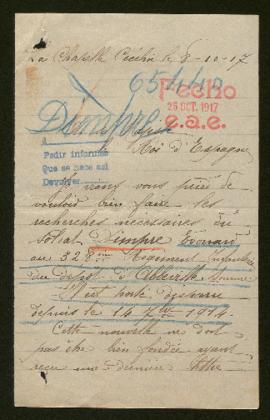 La Chapelle Cecelin le 8-10-17
65440
Fecho
25 OCT. 1917
e.a.e.
Dimpre
A
Roi d'Espagne
Pedir informe
Que se hace así
Devolver
vous prier de
vouloir bien faire les
recherches nécessaires du
soldat Dimpre
au 328me Régiment infanterie
du dépôt d'Abbeville Somme
Il est porté disparu
depuis le 14 7bre 1914.
Cette nouvelle ne doit
pas être bien fondée ayant
reçu une dernière lettre